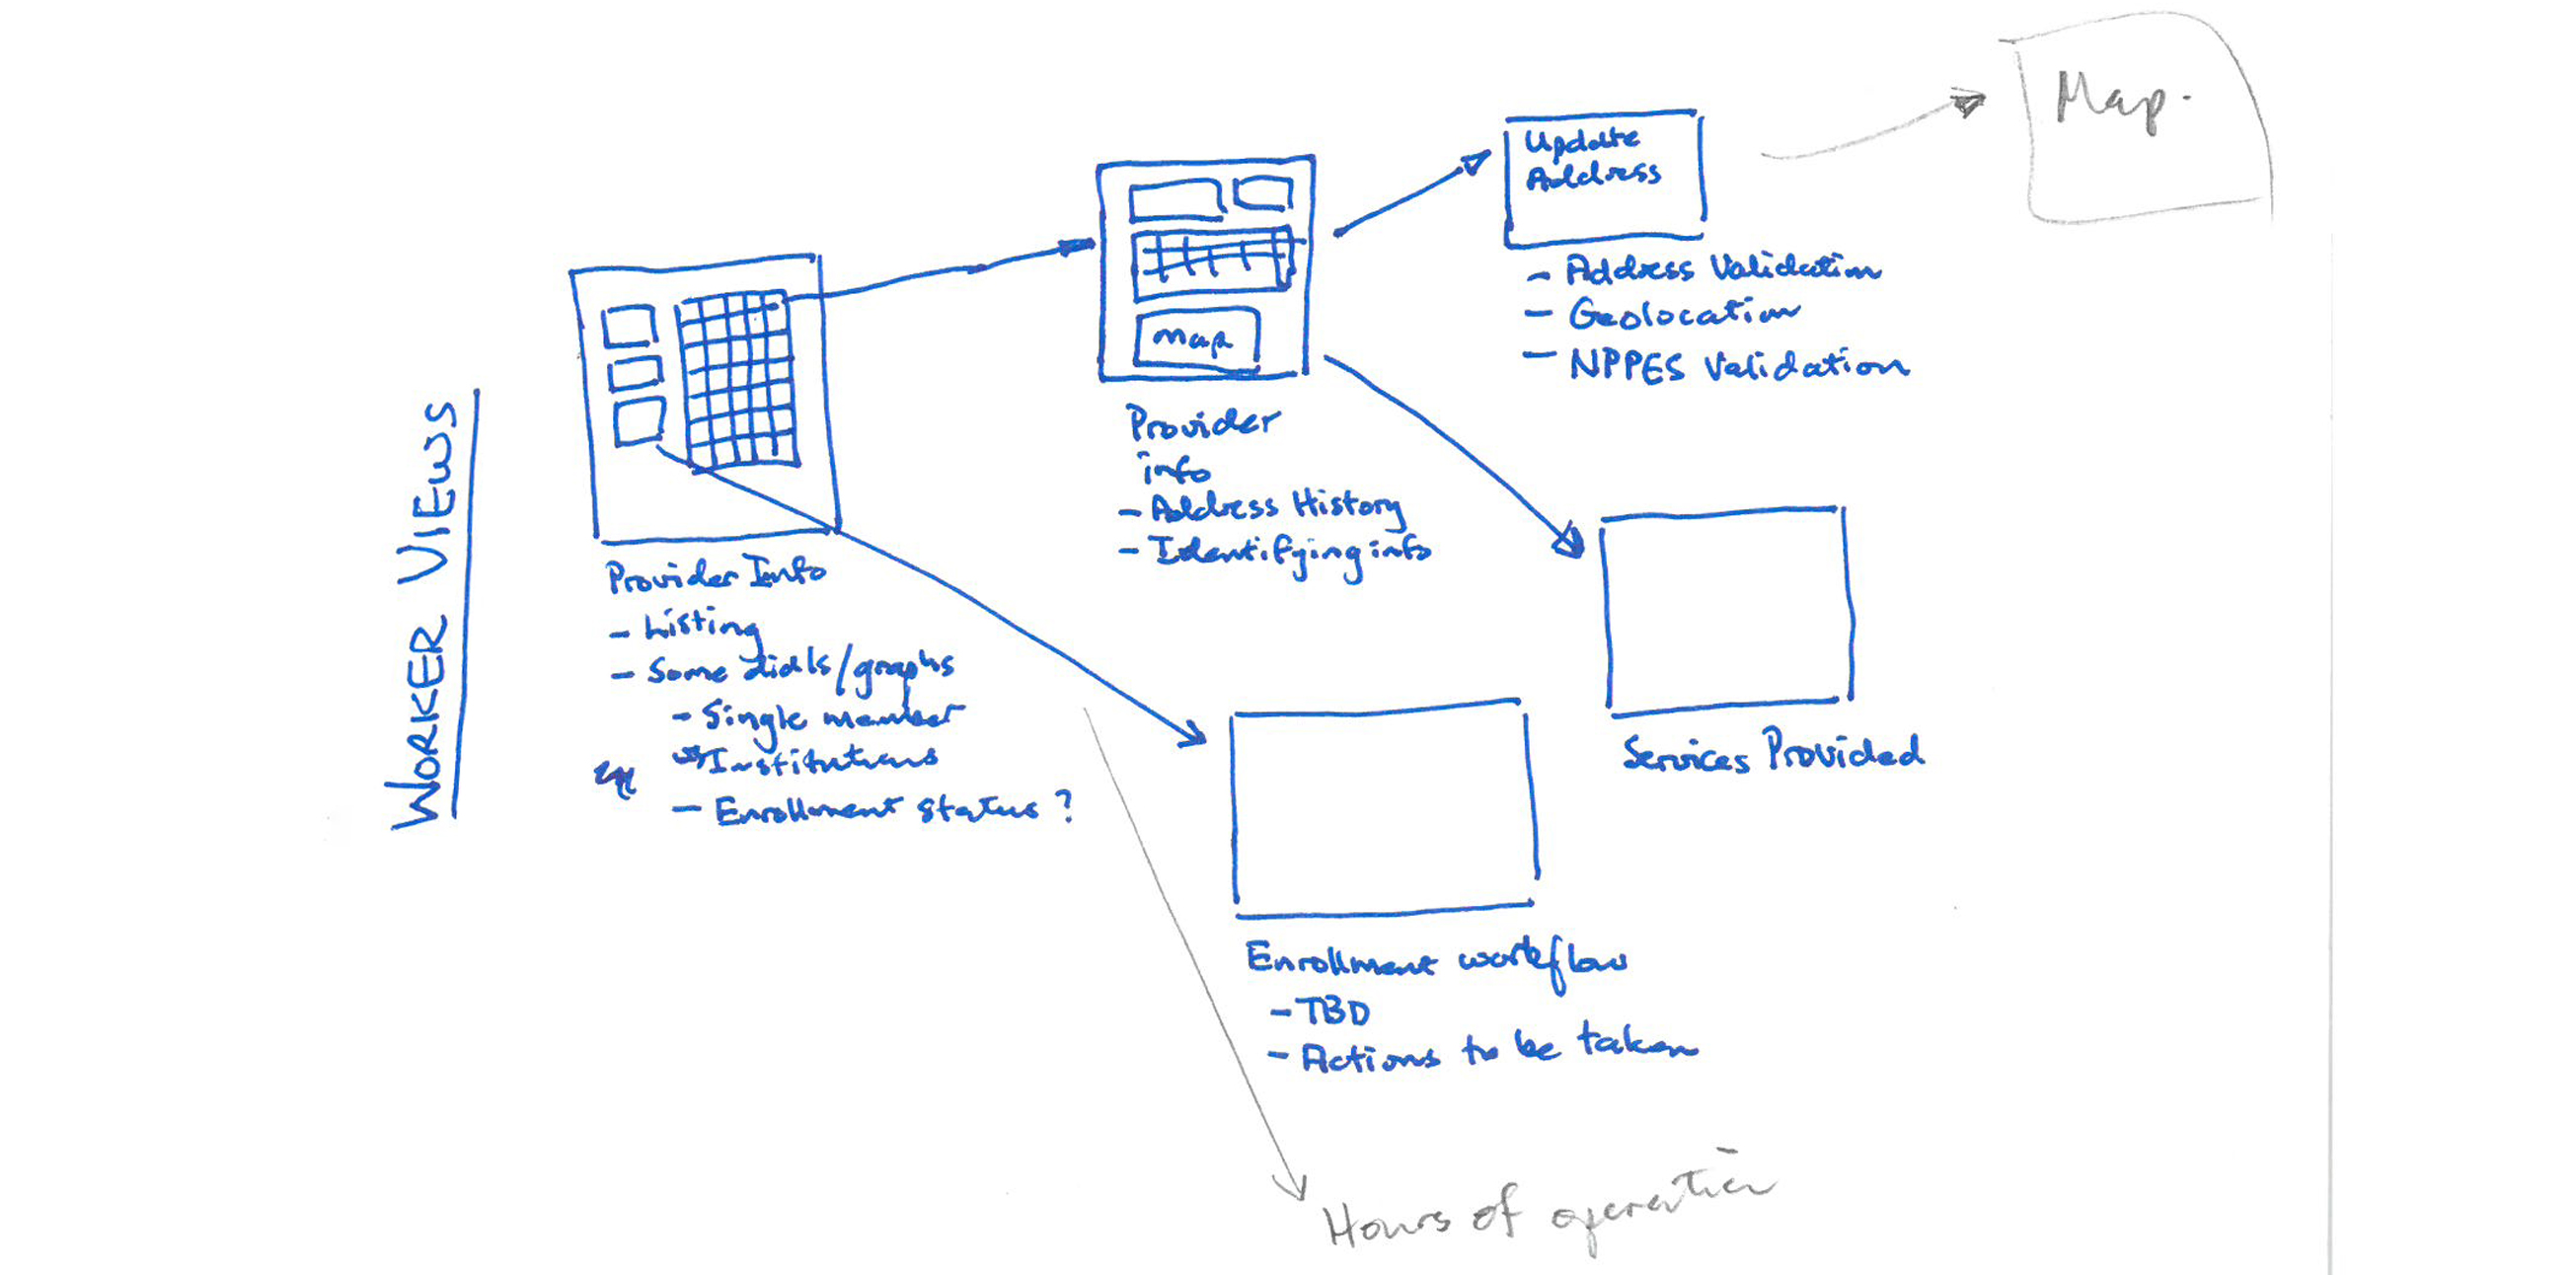 WORKER VIEWS
Provider Info
- Listing
- Some dials/graphs
- Single member
vs Institutions
- Enrollment status ?
Map
Provider
info
- Address History
- Identifying info
Update
Address
- Address Validation
- Geolocation
- NPPES Validation
Map.
Services Provided
Enrollment workflow
- TBD
- Actions to be taken
Hours of operation